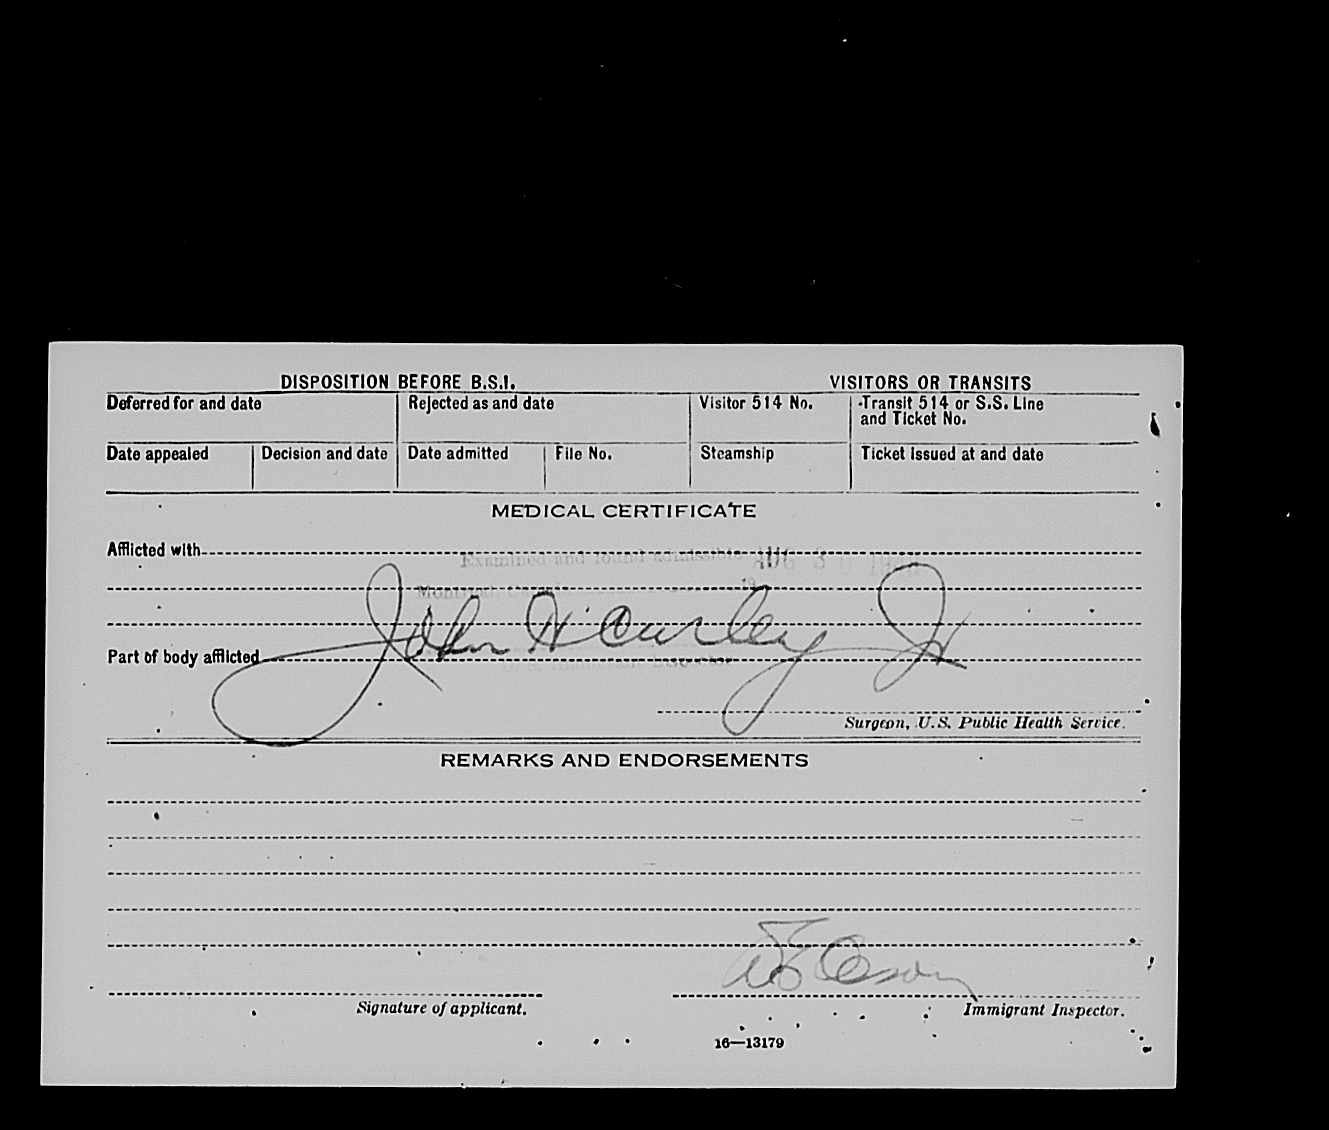 DISPOSITION BEFORE B.S.I. VISITORS OR TRANSITS
Deferred for and date Rejected as and date Visitor 514 No. Transit 514 or S.S. Line
and Ticket No.
Date appealed Decision and date Date admitted File No. Steamship Ticket issued at and date
MEDICAL CERTIFICATE
Afflicted with
Examined and found admissible AUG 30
Montreal, 19
John H Curley Jr
Part of body afflicted
Inspector
Surgeon, U.S. Public Health Service.
REMARKS AND ENDORSEMENTS
Signature of applicant. Immigrant Inspector.
16—13179